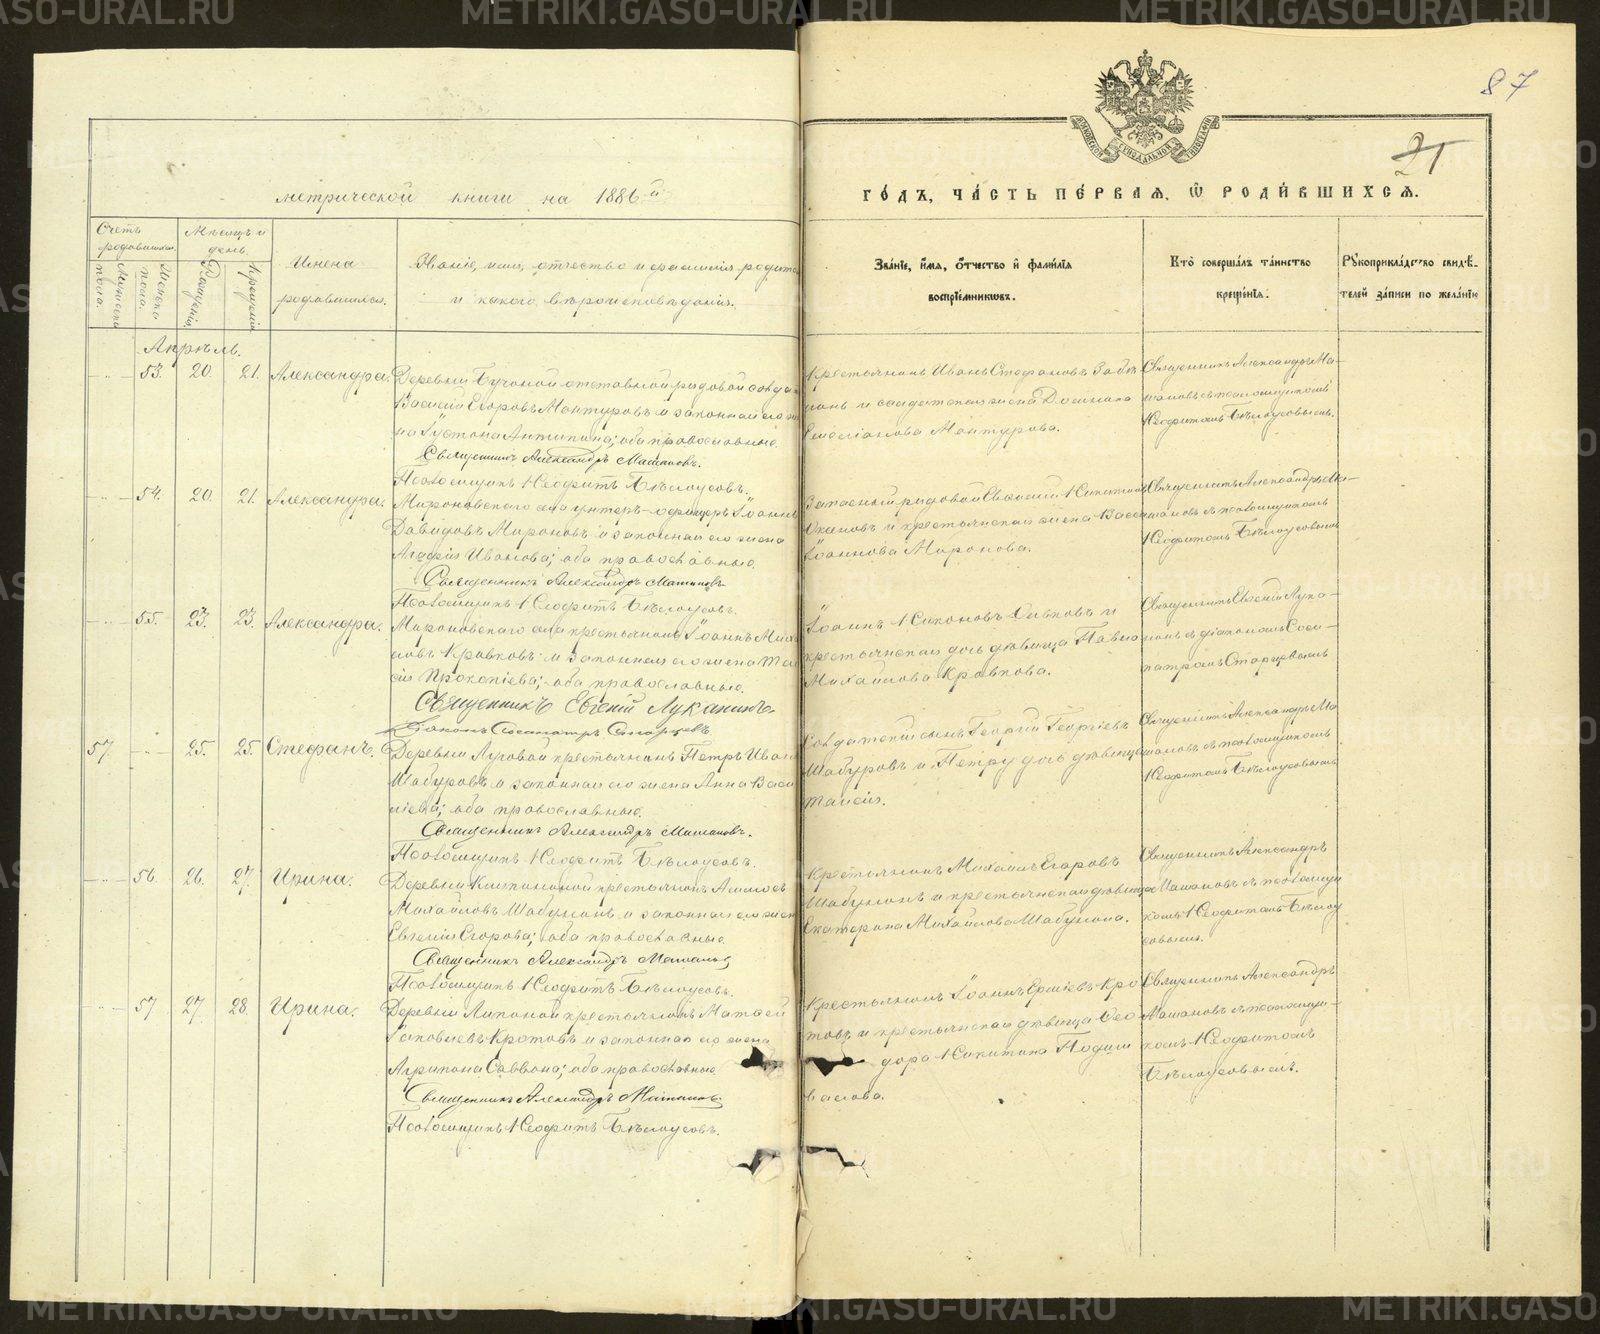 METRIKI.GASO-URAL.RU
87
21
метрической книги на 1886й
ГОДЪ, ЧАСТЬ ПЕРВАЯ, Ѡ РОДИВШИХСЯ.
Счетъ родившихся.
Мужеска пола.
Женска пола.
Мѣсяцъ и день
Рожденія.
Крещенія
Имена родившихся.
Званіе, имя, отчество и фамилія родит
и какого вѣроисповѣданія.
Званіе, имя, отчество и фамилія
воспріемниковъ.
Кто совершалъ таинство
крещенія.
Рукоприкладство свидѣ-
телей записи по желанію
Апрѣль.
53. 20. 21. Александра.
Деревни отставной рядовой
Василій Егоровъ Мантуровъ и законная его же
на Антипина; оба православные.
Священникъ Александръ Машановъ.
Псаломщикъ Неофитъ Бѣлоусовъ.
Крестьянинъ Иванъ Стефановъ
и солдатская жена
Мантурова.
Священникъ Александръ Ма-
шановъ съ псаломщикомъ
Неофитомъ Бѣлоусовымъ.
54. 20. 21. Александра.
Мироновскаго села унтеръ-офицеръ Іоаннъ
Давидовъ Мироновъ и законная его жена
Агафія Иванова; оба православные.
Священникъ Александръ Машановъ
Псаломщикъ Неофитъ Бѣлоусовъ.
Запасный рядовой Евгеній Никитинъ
и крестьянская жена Васса
Іоаннова Миронова.
Священникъ Александръ Ма-
шановъ съ псаломщикомъ
Неофитомъ Бѣлоусовымъ
55. 23. 23. Александра.
Мироновскаго села крестьянинъ Іоаннъ Миха
ловъ Кравковъ и законная его жена Таи
сія Прокопіева; оба православные.
Священникъ Евгеній Луканинъ
Діаконъ Сосипатръ Старцевъ.
Іоаннъ Никоновъ и
крестьянская дочь дѣвица
Михайлова Кравкова.
Священникъ Евгеній Лука-
нинъ съ діакономъ Соси-
патромъ Старцевымъ
57 25. 25. Стефанъ.
Деревни Луговой крестьянинъ Петръ Иван
Шабуровъ и законная его жена Анна Васи
ліева; оба православные.
Священникъ Александръ Машановъ.
Псаломщикъ Неофитъ Бѣлоусовъ.
Солдатскій сынъ Георгій Георгіевъ
Шабуровъ и Петру дочь дѣвица
Таисія.
Священникъ Александръ Ма
шановъ съ псаломщикомъ
Неофитомъ Бѣлоусовымъ
56. 26. 27. Ирина.
Деревни крестьянинъ
Михайловъ Шабунинъ и законная его жен
Евгенія Егорова; оба православные
Священникъ Александръ Машановъ
Псаломщикъ Неофитъ Бѣлоусовъ.
Крестьянинъ Михаилъ Егоровъ
Шабунинъ и крестьянская дѣвица
Екатерина Михайлова Шабунина.
Священникъ Александръ
Машановъ съ псаломщи
комъ Неофитомъ Бѣлоу
совымъ.
57 27. 28. Ирина.
Деревни Липиной крестьянинъ Матѳей
Іаковлевъ Кротовъ и законная его жена
Агрипина Саввина; оба православные
Священникъ Александръ Машановъ
Псаломщикъ Неофитъ Бѣлоусовъ.
Крестьянинъ Іоаннъ Кро
товъ и крестьянская дѣвица Ѳео
дора Никитина
Священникъ Александръ
Машановъ съ псаломщи-
комъ Неофитомъ
Бѣлоусовымъ.